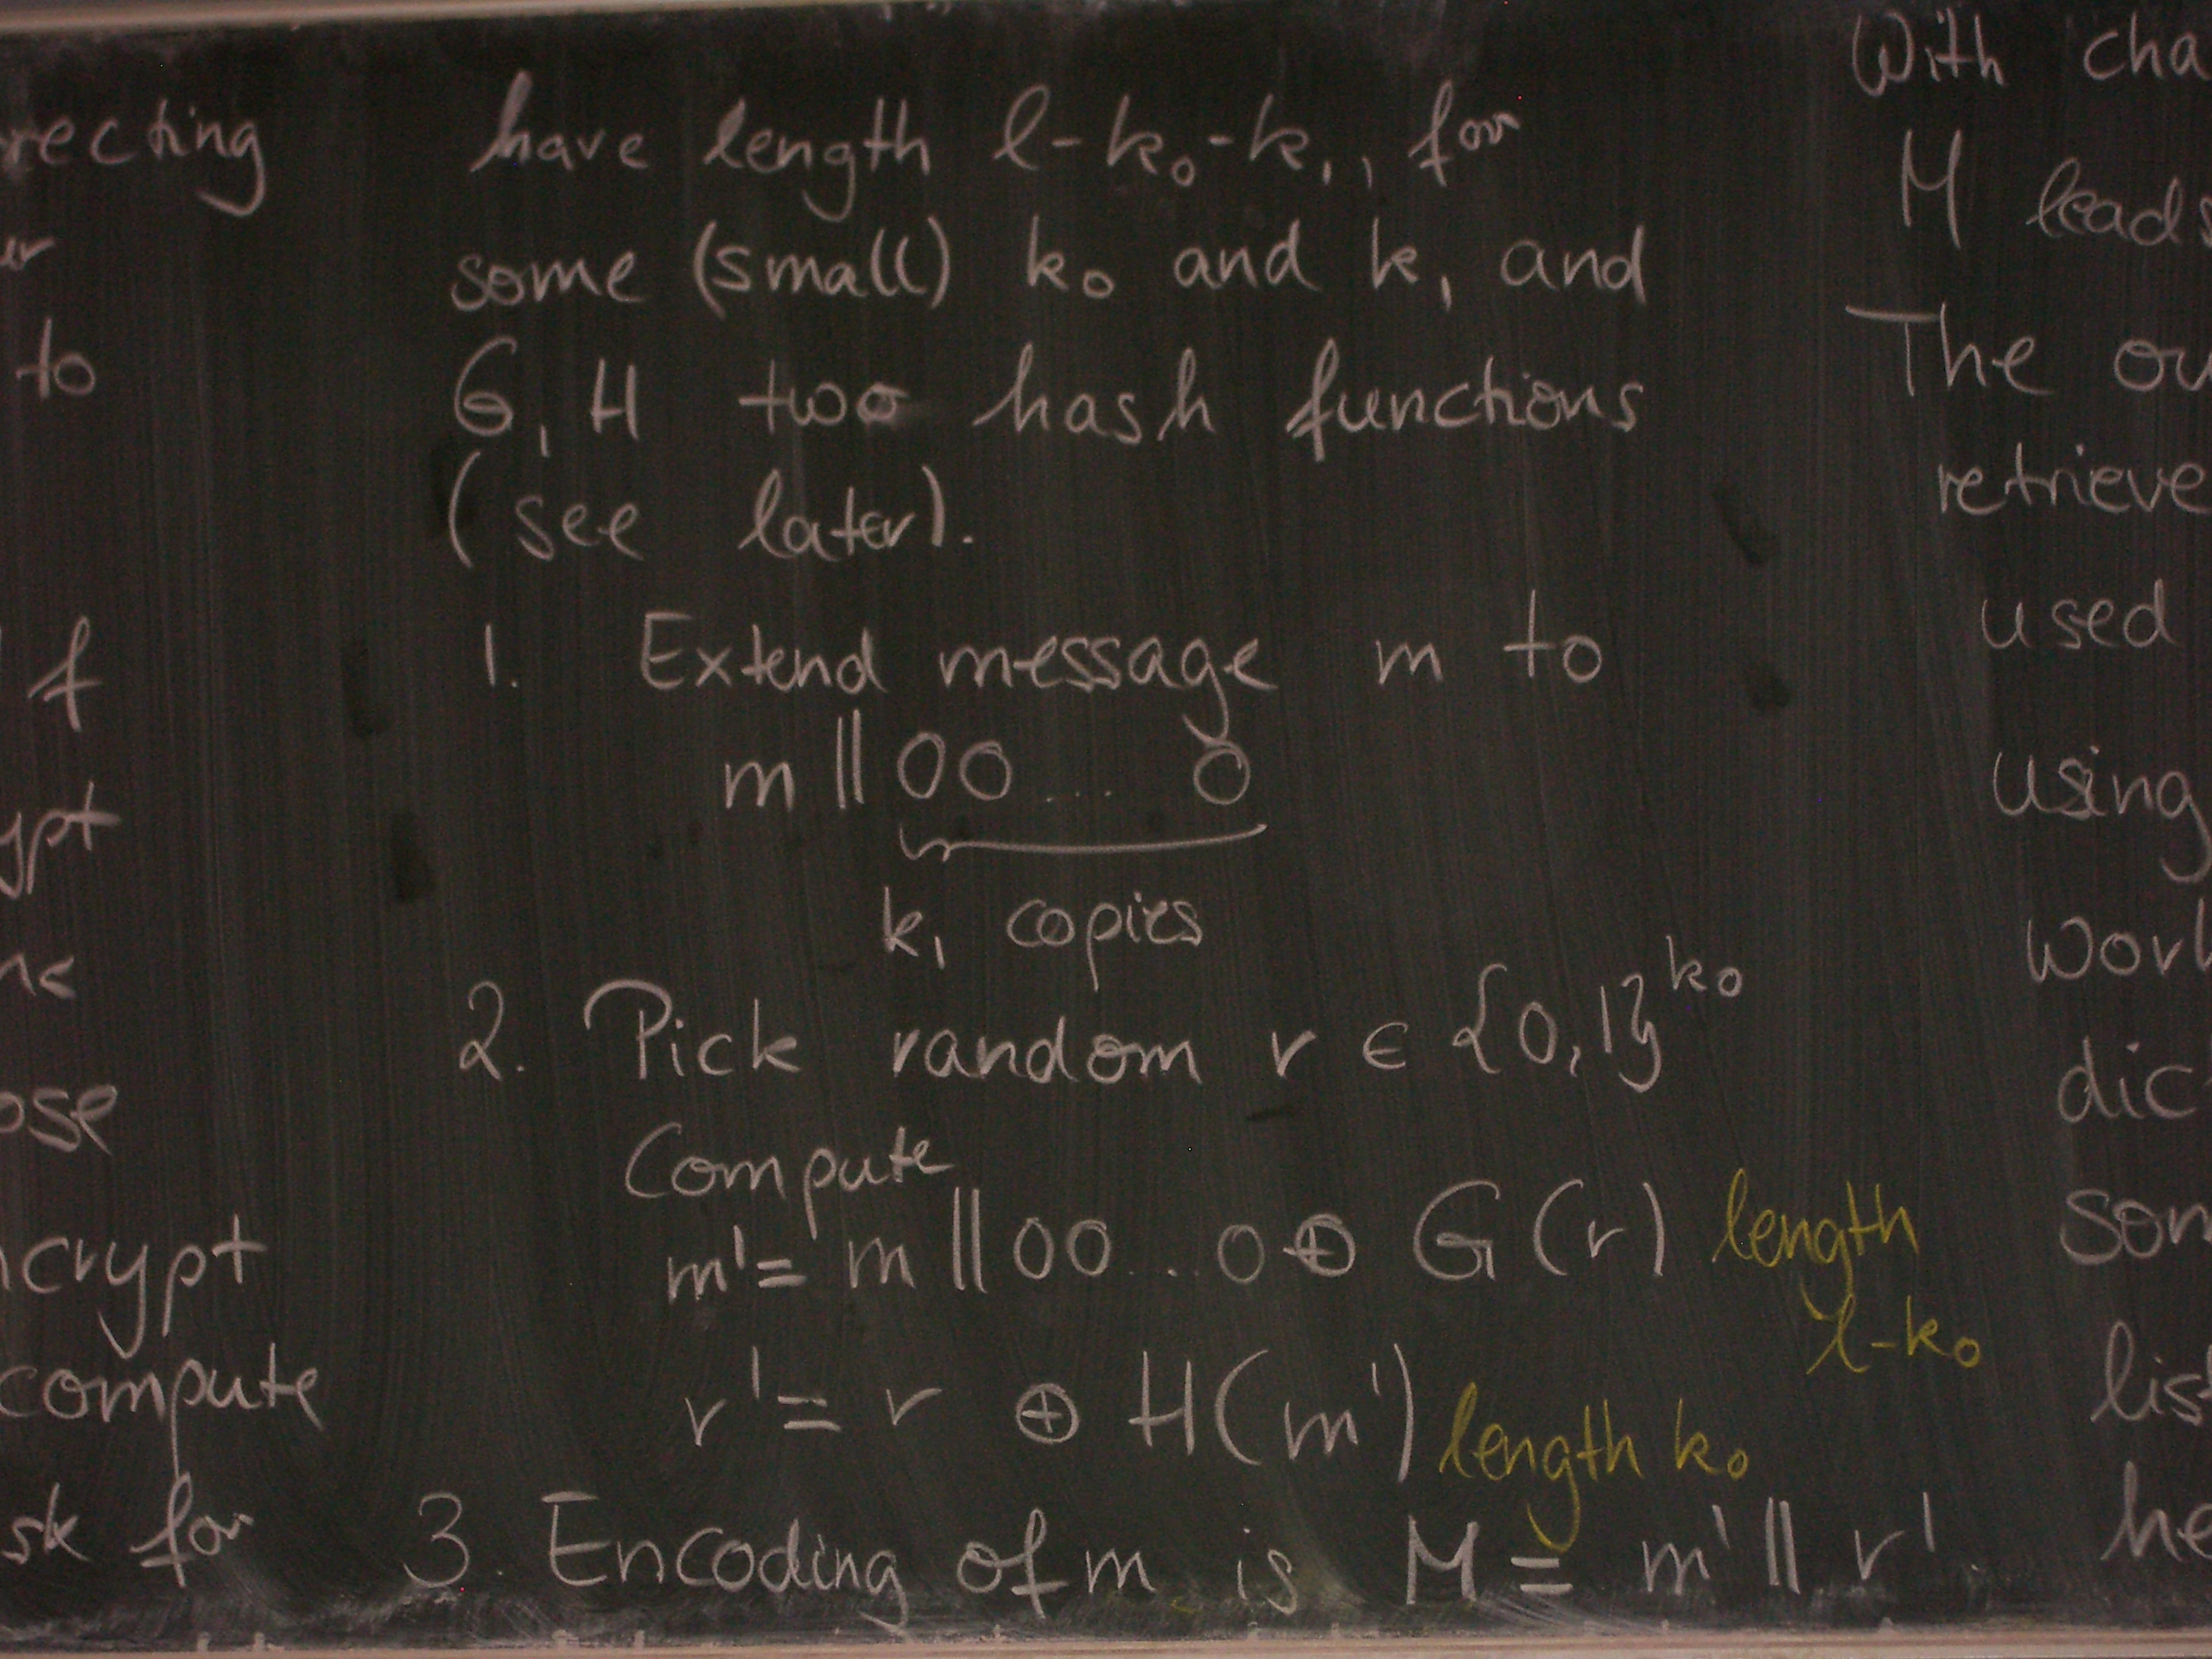 recting
ur
to
f
ypt
ose
ncrypt
compute
sk for
have length l-k₀-k₁, for
some (small) k₀ and k₁ and
G, H two hash functions
(see later).
1. Extend message m to
m || 00 ... 0
k₁ copies
2. Pick random r ∈ {0,1}^k₀
Compute
m' = m || 00 ... 0 ⊕ G(r) length
l-k₀
r' = r ⊕ H(m') length k₀
3. Encoding of m is M = m' || r'.
With cha
M leads
The ou
retrieve
used
using
work
dic
som
lis
he